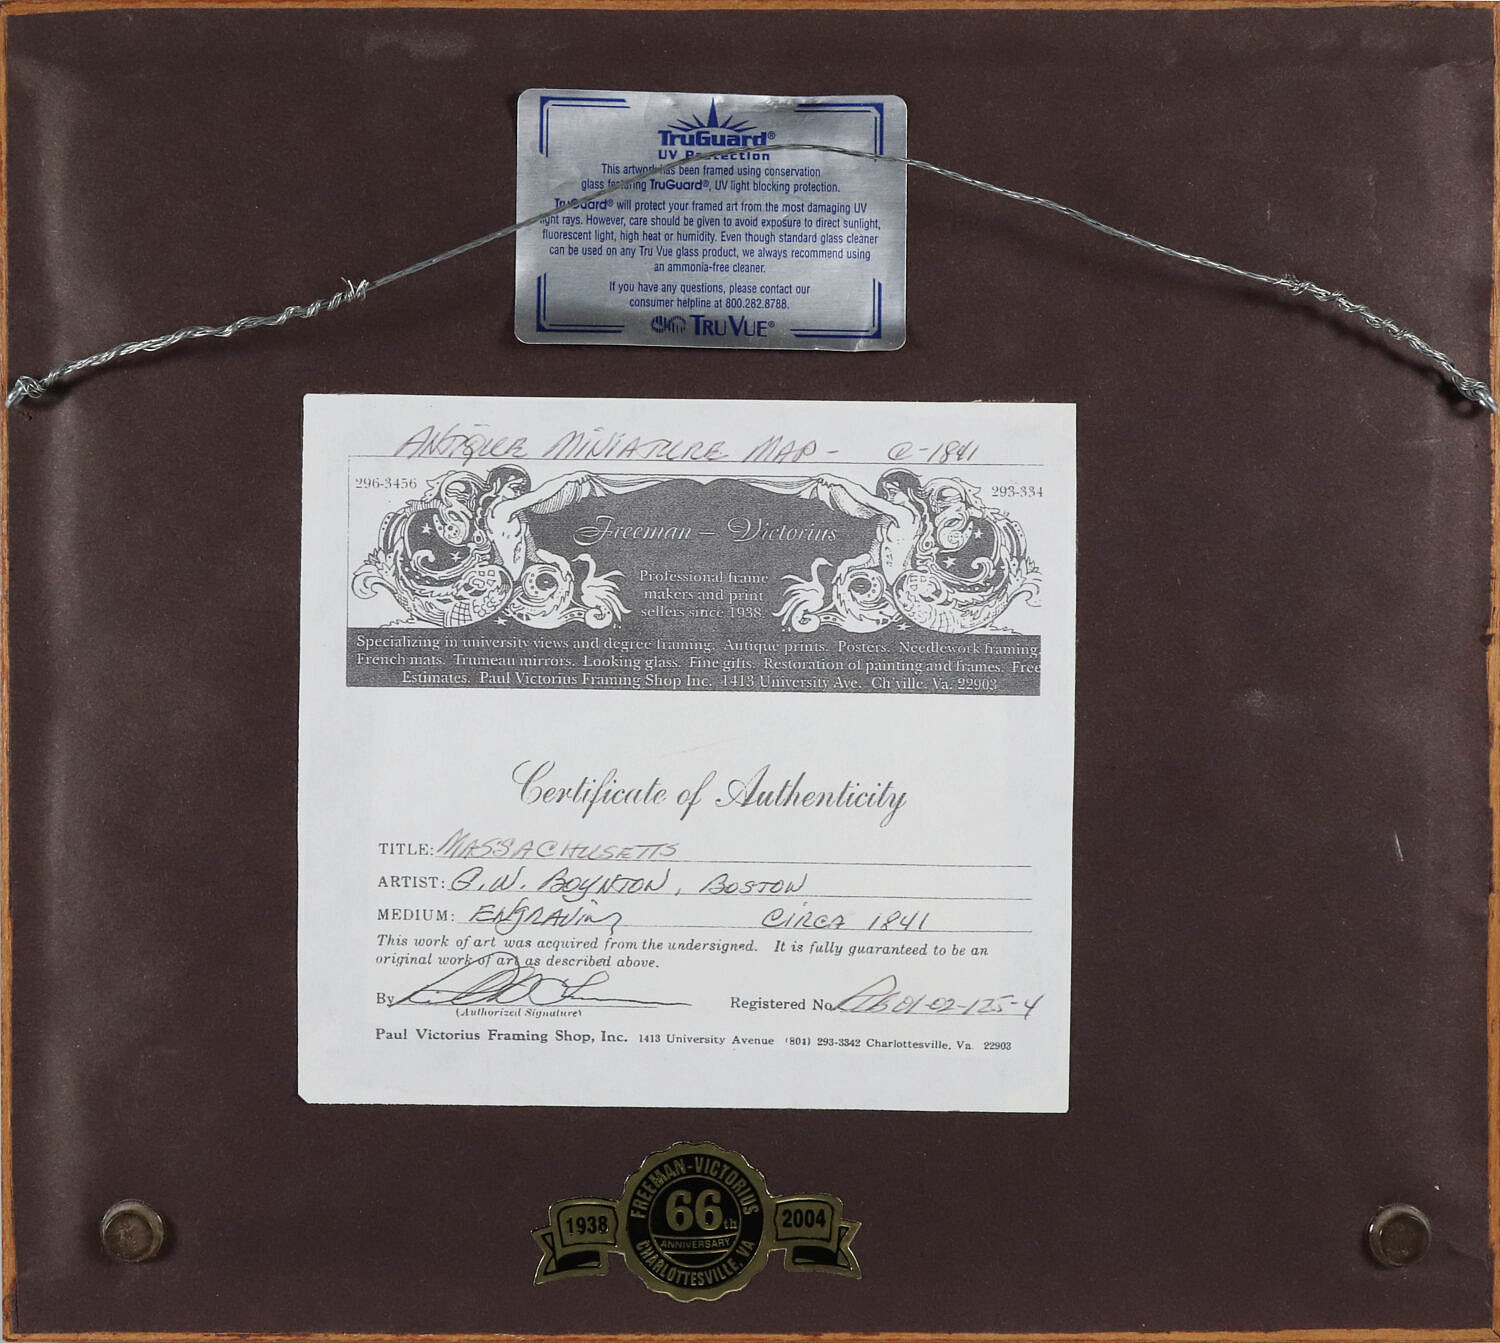 TruGuard®
UV Protection
This artwork has been framed using conservation
glass featuring TruGuard®, UV light blocking protection.
TruGuard® will protect your framed art from the most damaging UV
light rays. However, care should be given to avoid exposure to direct sunlight,
fluorescent light, high heat or humidity. Even though standard glass cleaner
can be used on any Tru Vue glass product, we always recommend using
an ammonia-free cleaner.
If you have any questions, please contact our
consumer helpline at 800.282.8788.
TRU VUE®
ANTIQUE MINIATURE MAP - C-1841
296-3456
293-334
Freeman - Victorius
Professional frame
makers and print
sellers since 1938.
Specializing in university views and degree framing. Antique prints. Posters. Needlework framing.
French mats. Trumeau mirrors. Looking glass. Fine gifts. Restoration of painting and frames. Free
Estimates. Paul Victorius Framing Shop Inc. 1413 University Ave. Ch'ville. Va. 22903
Certificate of Authenticity
TITLE: MASSACHUSETTS
ARTIST: G.W. BOYNTON, BOSTON
MEDIUM: ENGRAVING CIRCA 1841
This work of art was acquired from the undersigned. It is fully guaranteed to be an
original work of art as described above.
By
Registered No. 01-02-125-4
(Authorized Signature)
Paul Victorius Framing Shop, Inc. 1413 University Avenue (804) 293-3342 Charlottesville, Va. 22903
FREEMAN-VICTORIUS
1938 66th 2004
ANNIVERSARY
CHARLOTTESVILLE, VA